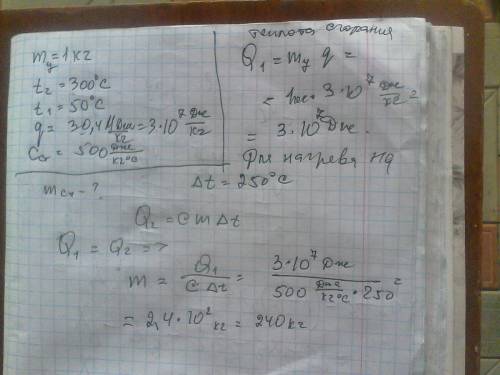 m_у = 1 кг
t₂ = 300°C
t₁ = 50°C
q = 30,4 МДж/кг = 3·10⁷ Дж/кг
C_ст = 500 Дж/кг°C
m_ст - ?
теплота сгорания
Q₁ = m_у q =
= 1кг·3·10⁷ Дж/кг =
= 3·10⁷ Дж.
Для нагрева на
Δt = 250°C
Q₂ = C m Δt
Q₁ = Q₂ =>
m = Q₁/(C Δt) = 3·10⁷ Дж/(500 Дж/кг°C · 250°) =
= 2,4·10² кг = 240 кг